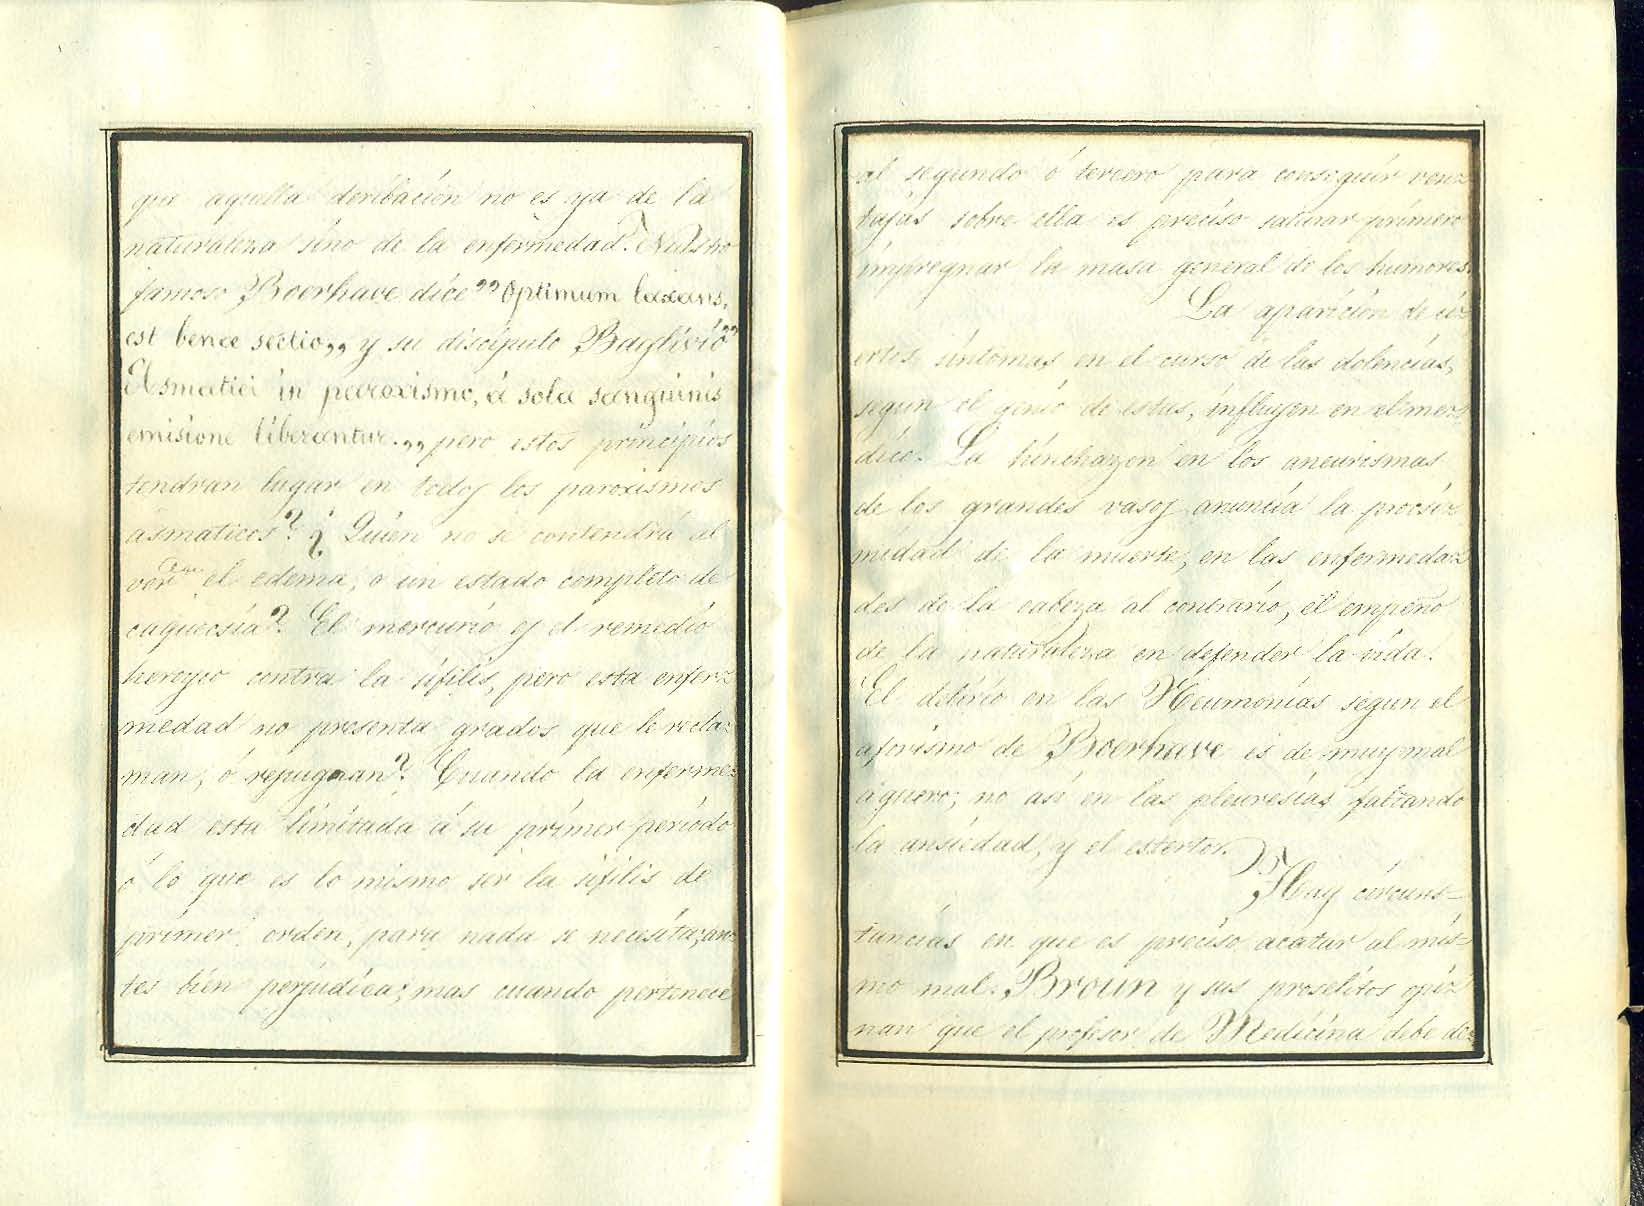 que aquella deribación no es ya de la
naturaleza sino de la enfermedad. Nuestro
famoso Boerhave dice" Optimum laxans,
est benee sectio,, y su discípulo Baglivio"
Asmatici in paroxismo, á sola sanguinis
emisione liberantur.,, pero estos principios
tendran lugar en todos los paroxismos
asmaticos? ¿Quién no se contendrá al
ver el edema, o un estado completo de
caquecsia? El mercurio es el remedio
heroyco contra la sífilis, pero esta enfer=
medad no presenta grados que le recla=
man, ó repugnan? Cuando la enferme=
dad esta limitada á su primer período
ó lo que es lo mismo ser la sífilis de
primer orden, para nada se necesita, an=
tes bien perjudica; mas cuando pertenece
al segundo ó tercero para conseguir ven=
tajas sobre ella es preciso saturar primero
impregnar la masa general de los humores.
La aparición de ci=
ertos síntomas en el curso de las dolencias,
segun el genio de estas, influyen en el mer=
dico. La hinchazon en los aneurismas
de los grandes vasos anuncia la procsi=
midad de la muerte, en las enfermeda=
des de la cabeza al contrario, el empeño
de la naturaleza en defender la vida.
El delirio en las Neumonías segun el
aforismo de Boerhave es de muy mal
aguero; no asi en las pleuresías faltando
la ansiedad, y el estertor.
Hay circuns=
tancias en que es preciso acatar al mis=
mo mal. Broun y sus proselitos opi=
nan que el profesor de Medicina debe de=